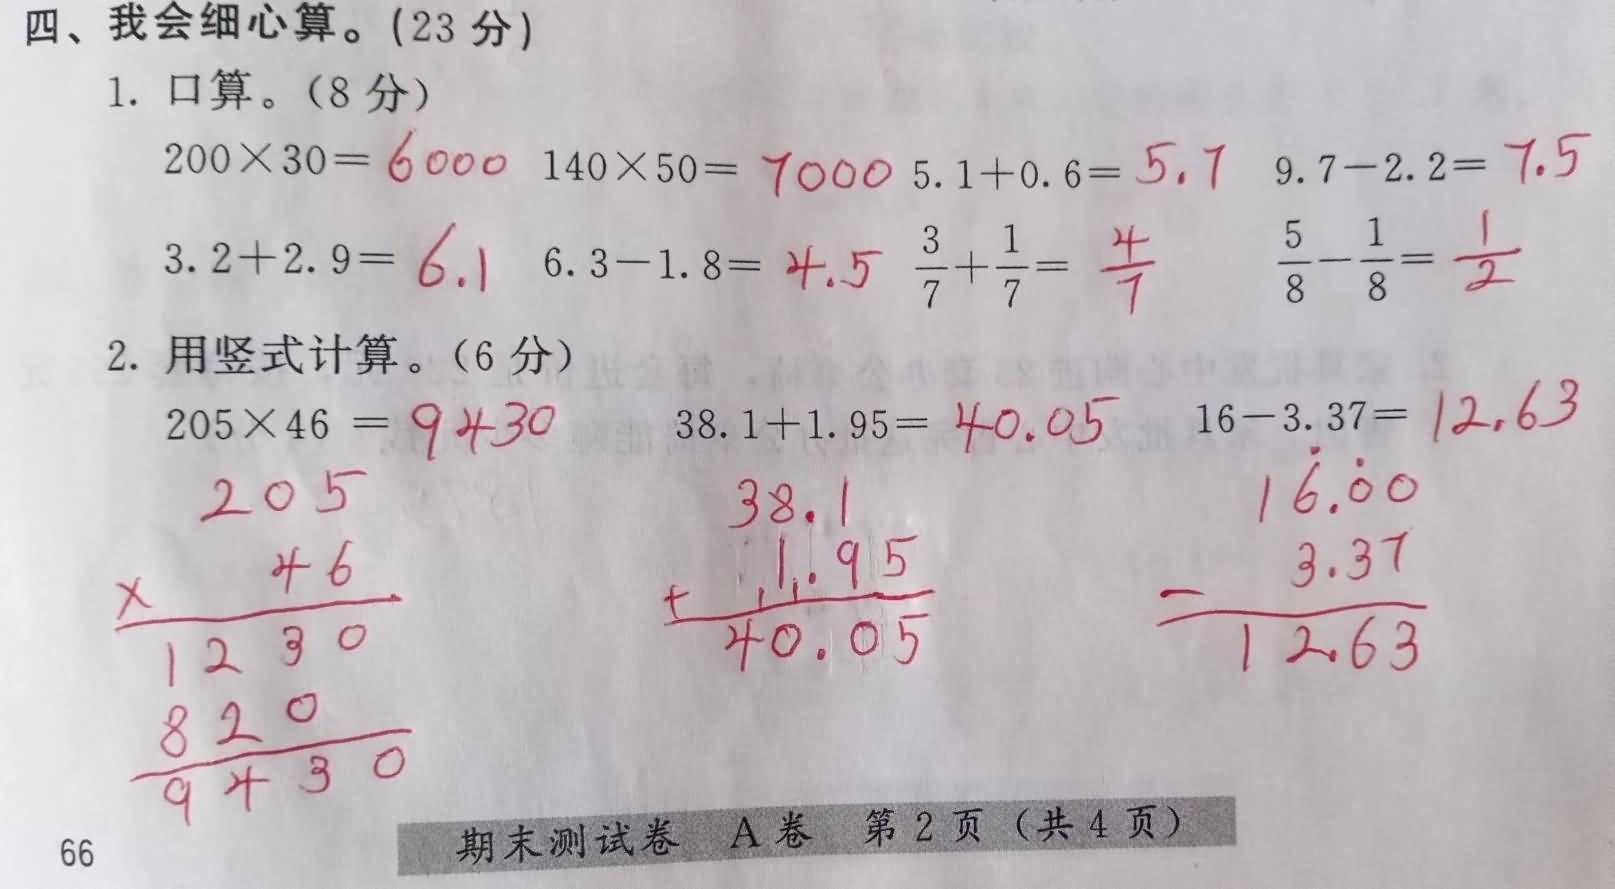 四、我会细心算。(23 分)
1. 口算。(8 分)
200×30= 6000 140×50= 7000 5.1+0.6= 5.7 9.7-2.2= 7.5
3.2+2.9= 6.1 6.3-1.8= 4.5 3/7+1/7= 4/7 5/8-1/8= 1/2
2. 用竖式计算。(6 分)
205×46 = 9430 38.1+1.95= 40.05 16-3.37= 12.63
205 38.1 16.00
× 46 + 1.95 - 3.37
1230 40.05 12.63
820
9430
66 期末测试卷 A 卷 第 2 页 (共 4 页)